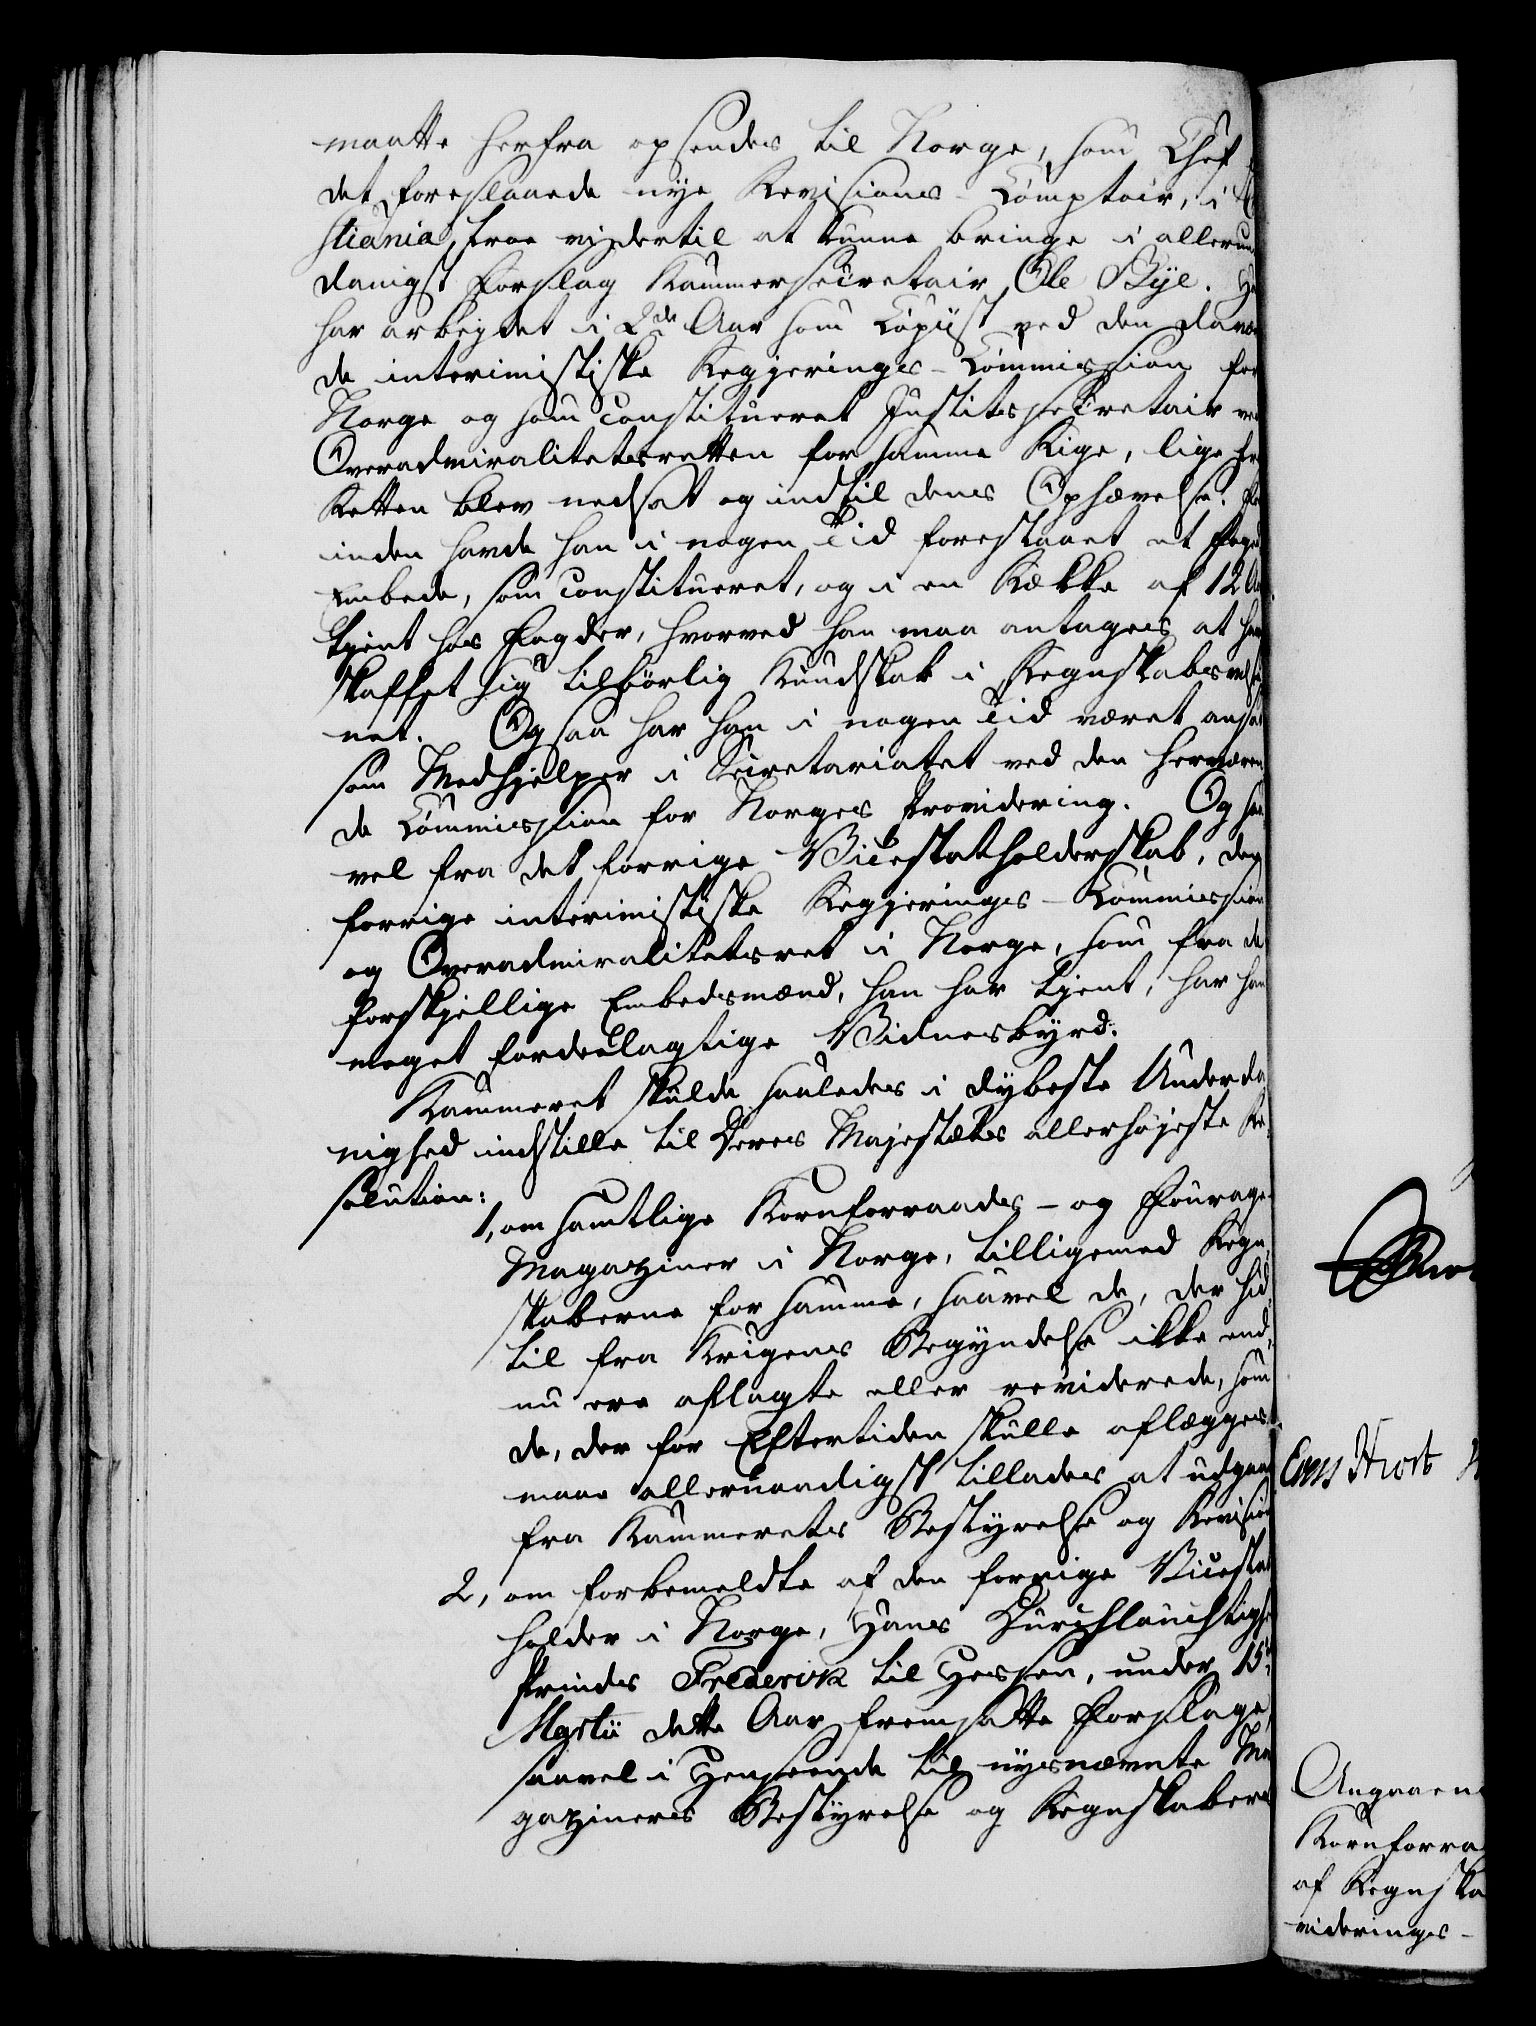 maatte herfra opsendes til Norge, som Chef
det foreslaaede nye Revisions-Comptoir, i
stiania, troe vi dertil at kunne bringe i allerun
danigst Forslag Kammersecretair Ole Bye.
har arbeydet i 2de Aar som Copiist ved den davæ
de interimistiske Regjerings-Commission for
Norge og som constitueret Justitssecretair ved
Overadmiralitetsretten for samme Rige, lige fra
Retten blev nedsat og indtil dens Ophævelse.
inden havde han i nogen Tid forestaaet et Foge
Embede, som constitueret, og i en Række af 12 Aa
tjent hos Fogder, hvorved han maa antages at have
skaffet sig tilbörlig Kundskab i Regnskabsvæse
net. Ogsaa har han i nogen Tid været ansat
som Medhjelper i Secretariatet ved den herværen
de Commission for Norges Providering. Og saa
vel fra det forrige Vicestatholderskab, den
forrige interimistiske Regjerings-Commission
og Overadmiralitetsret i Norge, som fra de
forskjellige Embedsmænd, han har tjent, har han
meget fordeelagtige Vidnesbyrd.
Kammeret skulde saaledes i dybeste Underda
nighed indstille til Deres Majestæts allerhøjeste Re,
solution:
1, om samtlige Kornforraads- og Fourage-
Magaziner i Norge, tilligemed Regn,
skaberne for samme, saavel de, der hid,
til fra Krigens Begyndelse ikke end,
nu ere aflagte eller reviderede, som
de, der for Eftertiden skulle aflægges,
maae allernaadigst tillades at udgaae
fra Kammerets Bestyrelse og Revision
2, om forbemeldte af den forrige Vicestat
holder i Norge, Hans Durchlauchtighe
Prinds Frederik til Hessen, under 15de
Martii dette Aar fremsatte Forslage,
saavel i Henseende til nysnævnte Ma
gaziners Bestyrelse og Regnskabers
Angaaen
Kornforra
af Regnska
viderings-